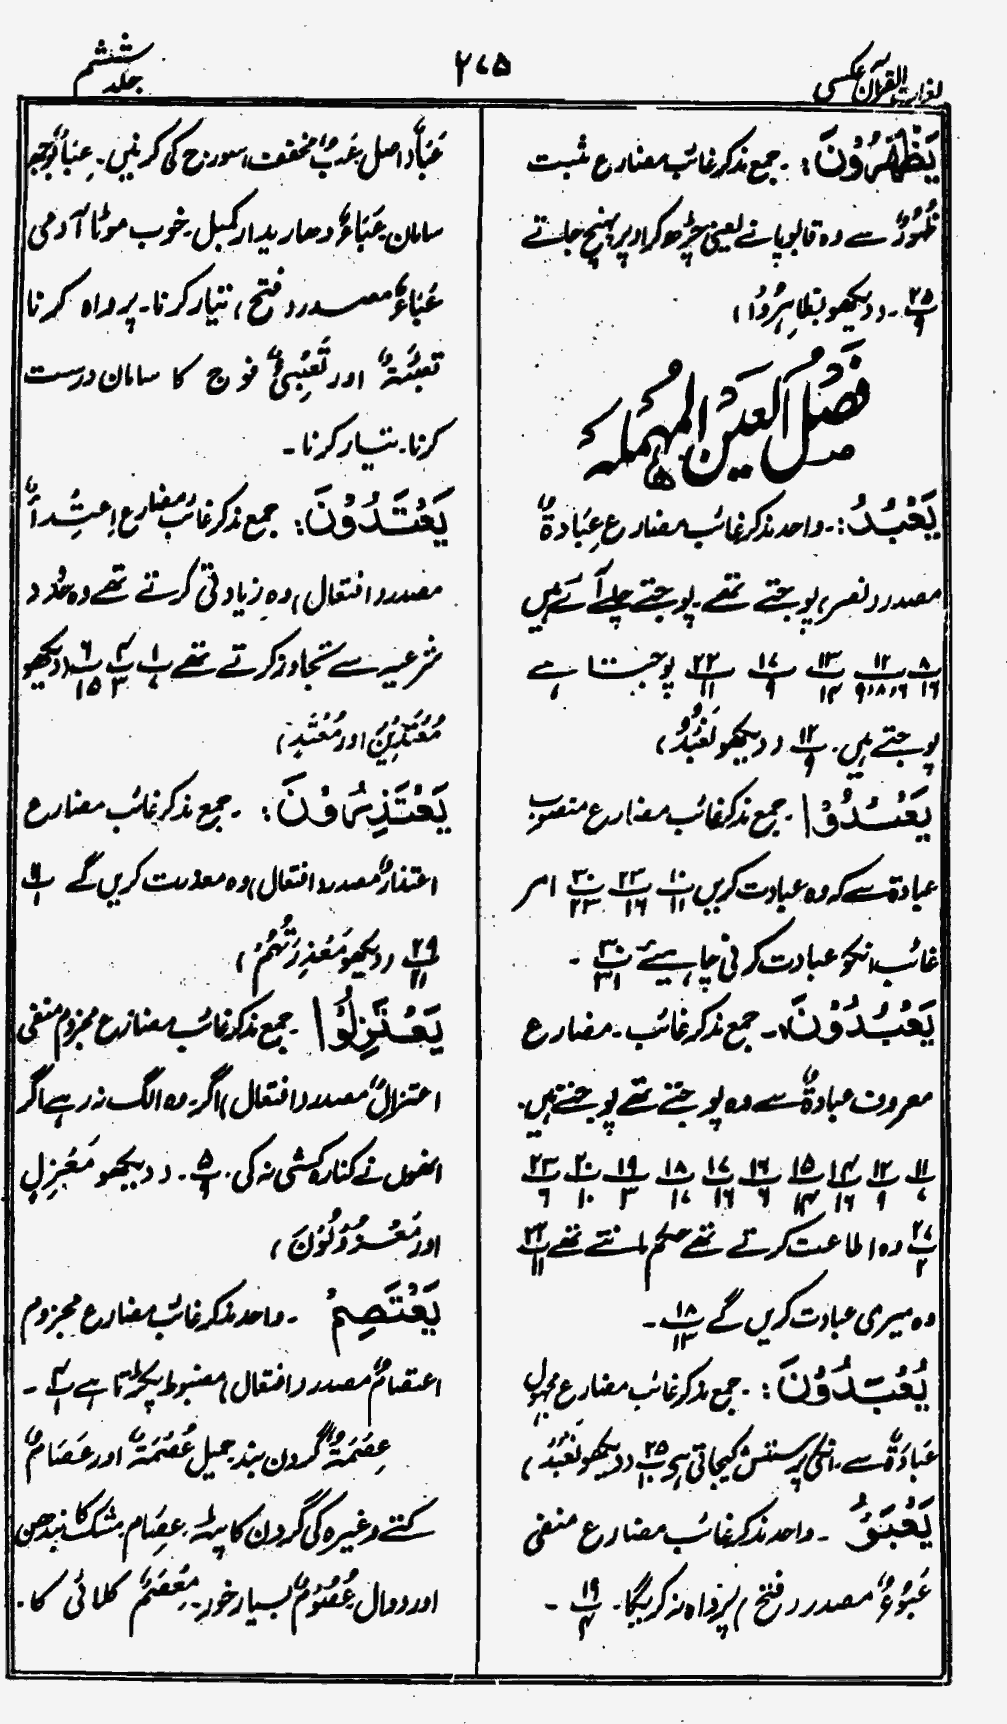 لغات القرآن عکسی
۲۷۵
جلد ششم
یَظْهَرُوْنَ: ۔ جمع مذکر غائب مضارع مثبت
ظُہُوْرٌ سے وہ قابو پاتے یعنی چڑھ کر اوپر پہنچ جاتے
۲۵/۹ ۔ (دیکھو تظاہرُوْا)
فَصْلُ الْعَیْنِ الْمُہْمَلَہْ
یَعْبُدُ: ۔ واحد مذکر غائب مضارع عِبَادَۃٌ
مصدر (نصر) پوجتے تھے۔ پوجتے چلے آئے ہیں
۸/۱۶ ۱۲/۹،۸،۱۶ ۱۳/۱۴ ۱۷/۹ ۲۲/۱۱ پوجتا ہے
پوجتے ہیں۔ ۱۲/۹ (دیکھو نَعْبُدُ)
یَعْبُدُوْا ۔ جمع مذکر غائب مضارع منصوب
عبادۃ سے کہ وہ عبادت کریں ۱۰/۱۱ ۲۳/۱۶ ۳۰/۲۳ امر
غائب انکو عبادت کرنی چاہیئے ۳۰/۳۱ ۔
یَعْبُدُوْنَ: ۔ جمع مذکر غائب ۔ مضارع
معروف عبادۃٌ سے وہ پوجتے تھے پوجتے ہیں۔
۱۱/۷ ۱۲/۹ ۱۴/۱۶ ۱۵/۱۴ ۱۶/۶ ۱۷/۱۶ ۱۸/۱۷ ۱۹/۳ ۲۰/۱۰ ۲۳/۶
۲۷/۲ وہ اطاعت کرتے تھے حکم مانتے تھے ۲۲/۱۱
وہ میری عبادت کریں گے ۱۸/۱۳ ۔
یُعْبَدُوْنَ: ۔ جمع مذکر غائب مضارع مجہول
عَبَادَۃٌ سے۔ انکی پرستش کیجاتی ہو ۲۵/۱۰ (دیکھو نَعْبُدُ)
یَعْبَؤُ ۔ واحد مذکر غائب مضارع منفی
عَبُوْءٌ مصدر (فتح) پروا ہ نہ کریگا۔ ۱۹/۴ ۔
عَبَأٌ داصل عَدبٌ مخفف سورج کی کرنیں۔ عِبَأٌ بوجھ
سامان۔ عَبَاءٌ دھاریدار کمبل۔ خوب موٹا آدمی
عَبَاءٌ مصدر (فتح) تیار کرنا۔ پرواہ کرنا
تعبئۃٌ اور تَعْبِیْئٌ فوج کا سامان درست
کرنا۔ تیار کرنا۔
یَعْتَدُوْنَ: جمع مذکر غائب مضارع اِعتِدَاءٌ
مصدر (افتعال) وہ زیادتی کرتے تھے وہ حدود
شرعیہ سے تجاوز کرتے تھے ۱/۷ ۴/۳ ۶/۱۵ (دیکھو
مُعْتَدِیْنَ اور مُعْتَدٍ)
یَعْتَذِرُوْنَ: ۔ جمع مذکر غائب مضارع
اعتذارٌ مصدر (افتعال) وہ معذرت کریں گے ۱۱/۱
۲۹/۲۱ (دیکھو مَعْذِرَتُہُمْ)
یَعْتَزِلُوْا ۔ جمع مذکر غائب مضارع مجزوم منفی
اعتزالٌ مصدر (افتعال) اگر۔ وہ الگ نہ رہے اگر
انھوں نے کنارہ کشی نہ کی۔ ۵/۹ ۔ (دیکھو مَعْزِلٍ
اور مَعْزُوْلُوْنَ)
یَعْتَصِمْ ۔ واحد مذکر غائب مضارع مجزوم
اعتصامٌ مصدر (افتعال) مضبوط پکڑتا ہے ۴/۱ ۔
عِصْمَۃٌ گردن بند جمیل عُصْمَۃٌ اور عَصَامٌ
کتے وغیرہ کی گردن کا پٹہ۔ عِصَام مشک کا بندھن
اور دوال عُصُوْمٌ بسیار خور۔ مِعْصَمٌ کلائی کا۔